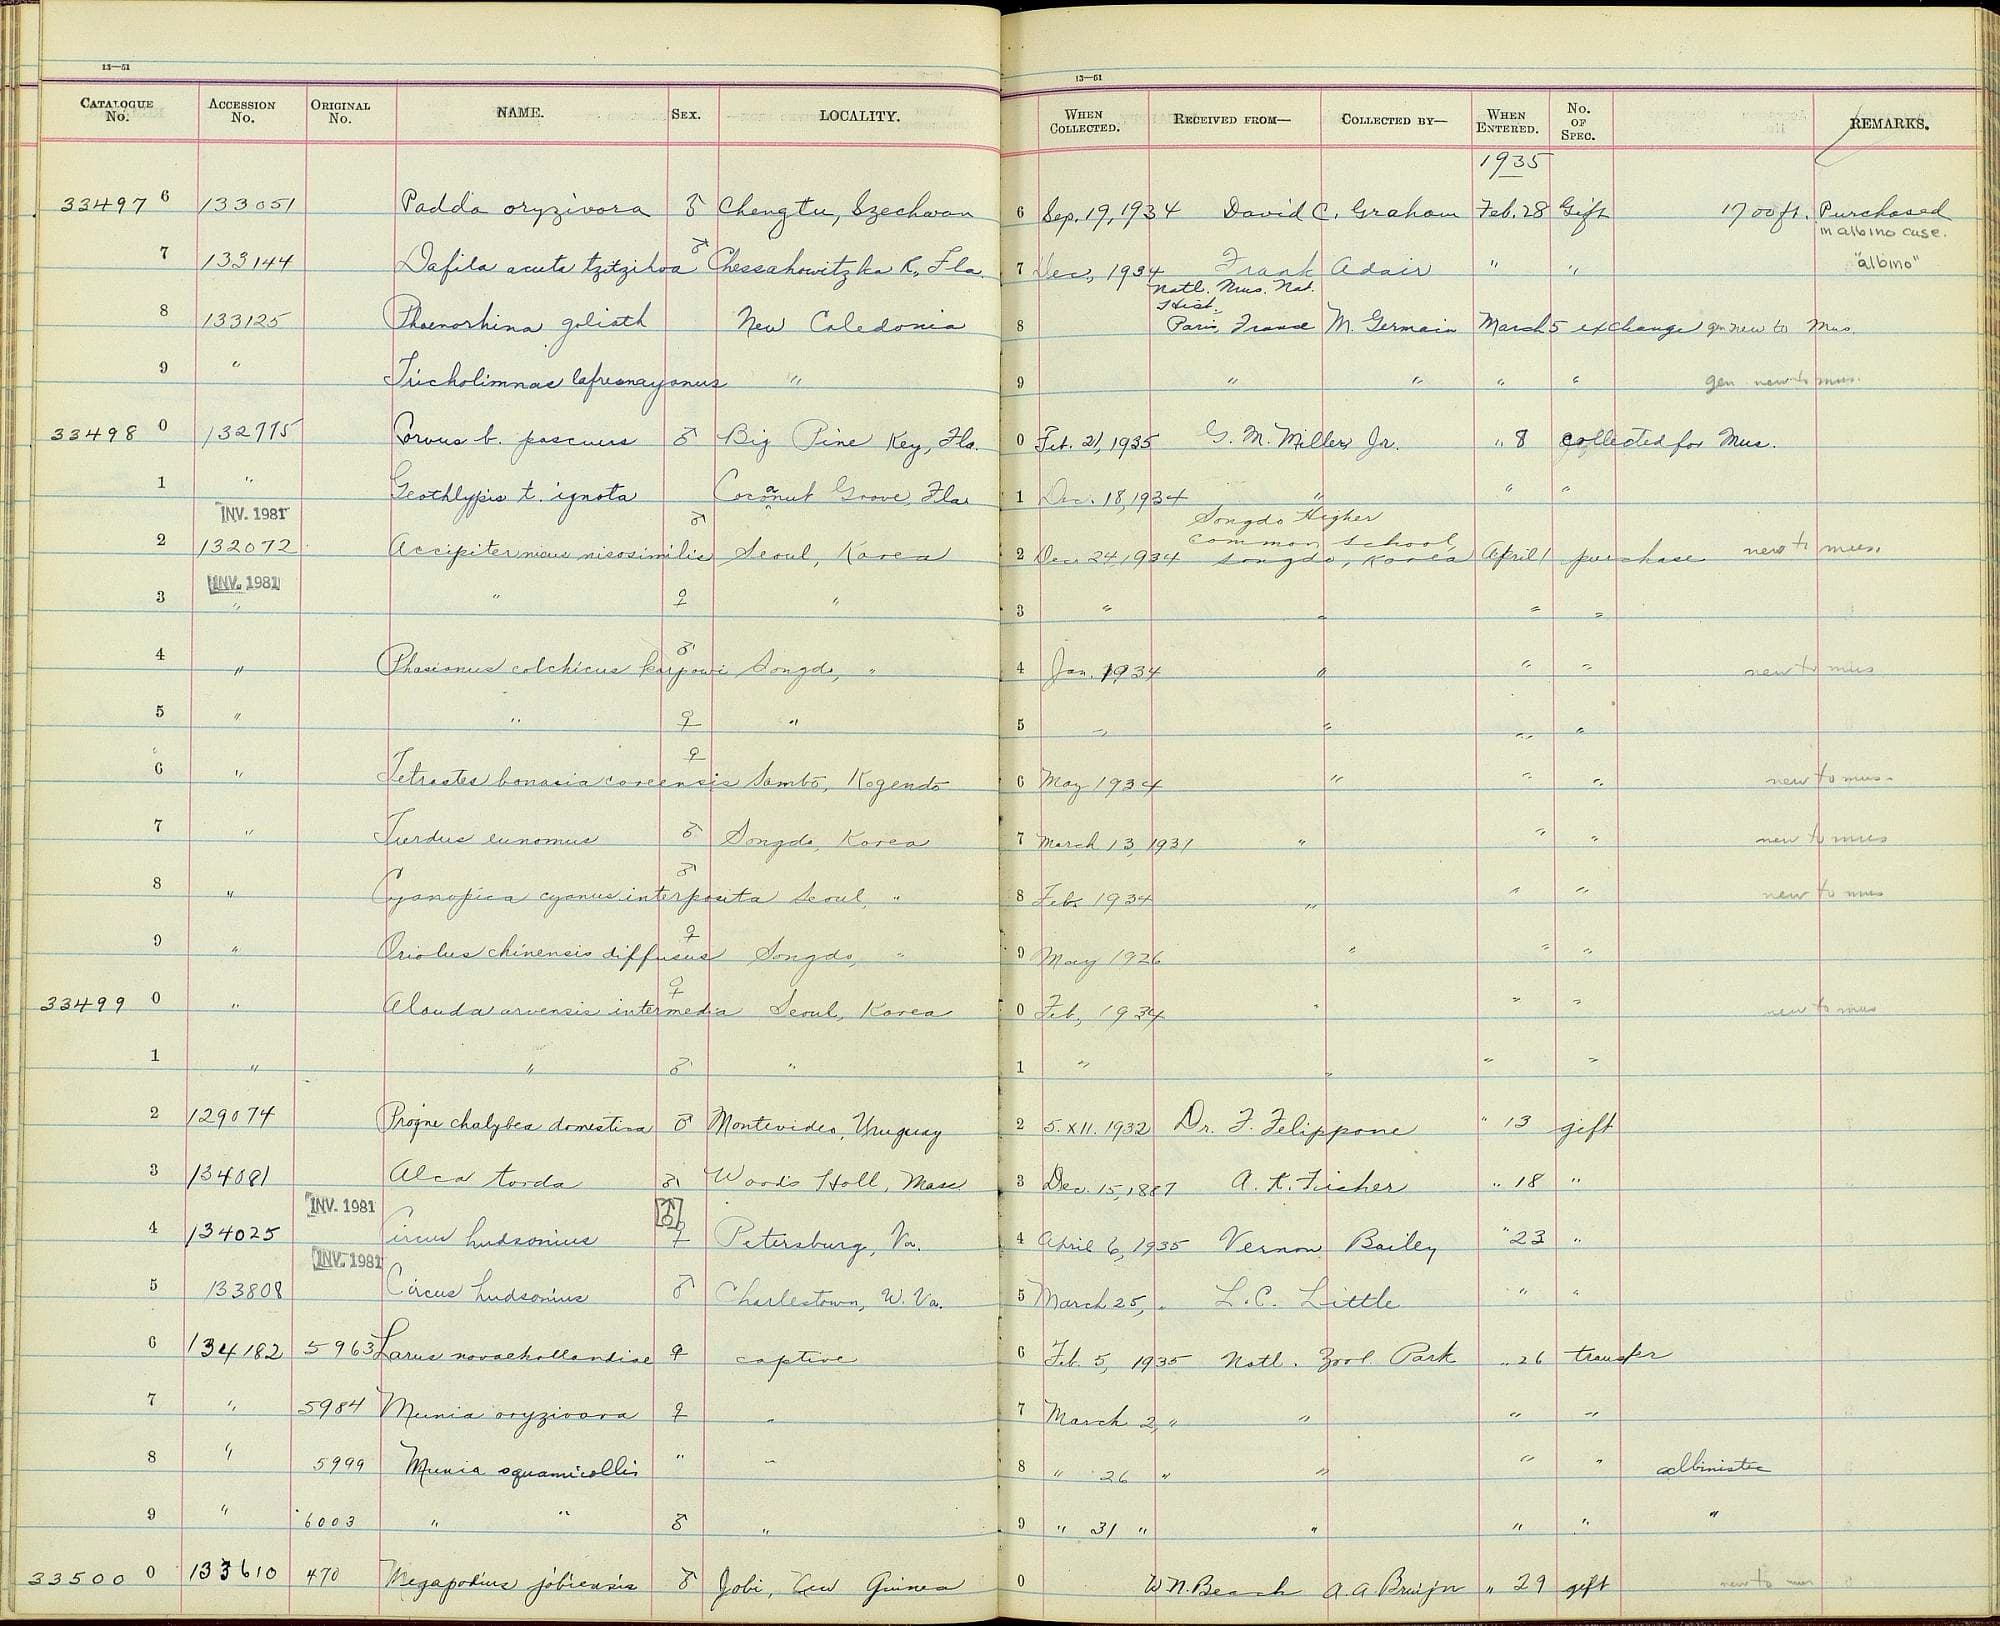 13—51
CATALOGUE No. ACCESSION No. ORIGINAL No. NAME. SEX. LOCALITY.
33497 6 133051 Padda oryzivora ♂ Chengtu, Szechwan
7 133144 Dafila acuta tzitzihoa ♂ Chessahowitzka R., Fla.
8 133125 Phaenorhina goliath New Caledonia
9 " Tricholimnas lafresnayanus "
33498 0 132775 Corvus b. pascuus ♂ Big Pine Key, Fla.
1 " Geothlypis t. ignota Cocoanut Grove, Fla.
INV. 1981
2 132072 Accipiter nisus nisosimilis ♂ Seoul, Korea
INV. 1981
3 " " ♀ "
4 " Phasianus colchicus karpowi ♂ Songdo, "
5 " " ♀ "
6 " Tetrastes bonasia coreensis ♀ Sambō, Kogendo
7 " Turdus eunomus ♂ Songdo, Korea
8 " Cyanopica cyanus interposita ♂ Seoul, "
9 " Oriolus chinensis diffusus ♀ Songdo, "
33499 0 " Alauda arvensis intermedia ♀ Seoul, Korea
1 " " ♂ "
2 129074 Progne chalybea domestica ♂ Montevideo, Uruguay
3 134081 Alca torda ♂ Woods Holl, Mass.
INV. 1981
4 134025 Circus hudsonius ♂ ♀ Petersburg, Va.
INV. 1981
5 133808 Circus hudsonius ♂ Charlestown, W. Va.
6 134182 5963 Larus novaehollandiae ♀ captive
7 " 5984 Munia oryzivora ♀ "
8 " 5999 Munia squamicollis " "
9 " 6003 " " ♂ "
33500 0 133610 470 Megapodius jobiensis ♂ Jobi, New Guinea
13—51
WHEN COLLECTED. RECEIVED FROM— COLLECTED BY— WHEN ENTERED. No. OF SPEC. REMARKS.
1935
6 Sep. 19, 1934 David C. Graham Feb. 28 Gift 1700 ft. Purchased
in albino case.
7 Dec, 1934 Frank Adair " " "albino"
Natl. Mus. Nat.
Hist.
8 Paris, France M. Germain March 5 exchange gen new to Mus.
9 " " " " gen new to mus.
0 Feb. 21, 1935 G. M. Miller, Jr. " 8 collected for Mus.
1 Dec. 18, 1934 " " "
Songdo Higher
common school,
2 Dec. 24, 1934 Songdo, Korea April 1 purchase new to mus.
3 " " " "
4 Jan. 1934 " " " new to mus
5 " " " "
6 May 1934 " " " new to mus.
7 March 13, 1931 " " " new to mus
8 Feb. 1934 " " " new to mus
9 May 1926 " " "
0 Feb, 1934 " " " new to mus
1 " " " "
2 5.XII.1932 Dr. F. Felippone " 13 gift
3 Dec. 15, 1887 A. K. Fisher " 18 "
4 April 6, 1935 Vernon Bailey " 23 "
5 March 25, " L. C. Little " "
6 Feb. 5, 1935 Natl. Zool. Park " 26 transfer
7 March 2, " " " "
8 " 26 " " " " albinistic
9 " 31 " " " " "
0 W. N. Beach A. A. Bruijn " 29 gift new to mus